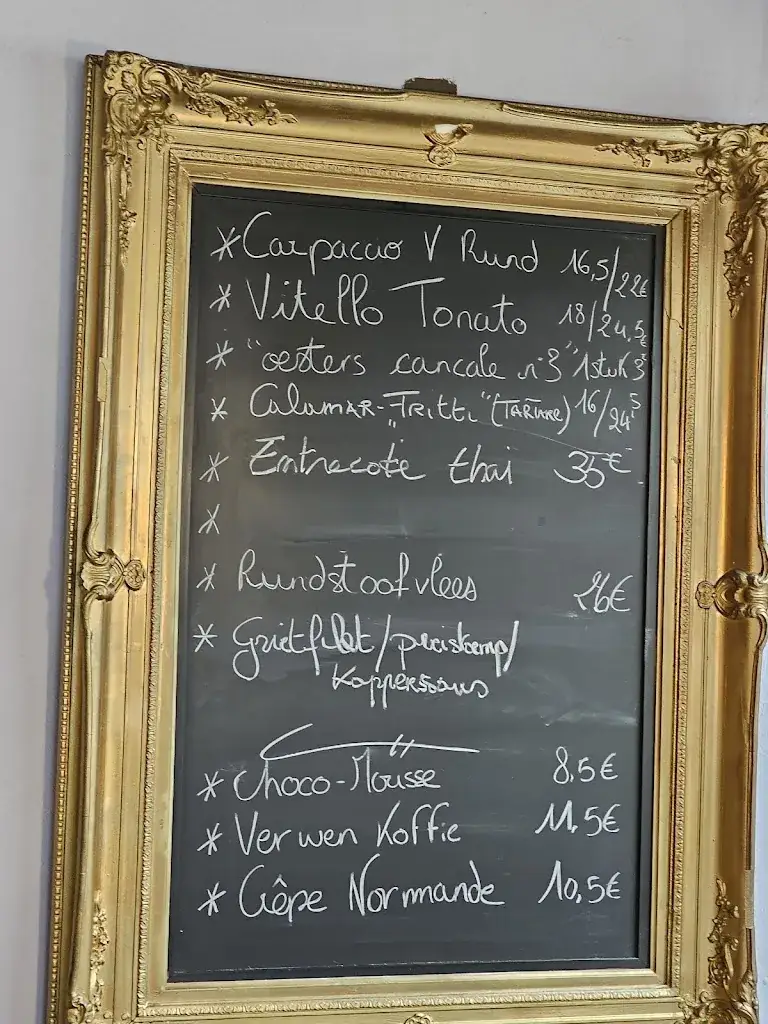 * Carpaccio V Rund 16,5/22€
* Vitello Tonato 18/24.5€
* "oesters cancale n°3" 1stuk 3€
* Calamar-Fritti "(TARTARE) 16/24⁵
* Entrecote thai 35€
*
* Rundstoofvlees 26€
* Grietfilet/preistomp/
Kapperssaus
* Choco-Mousse 8.5€
* Verwen Koffie 11.5€
* Crêpe Normande 10.5€